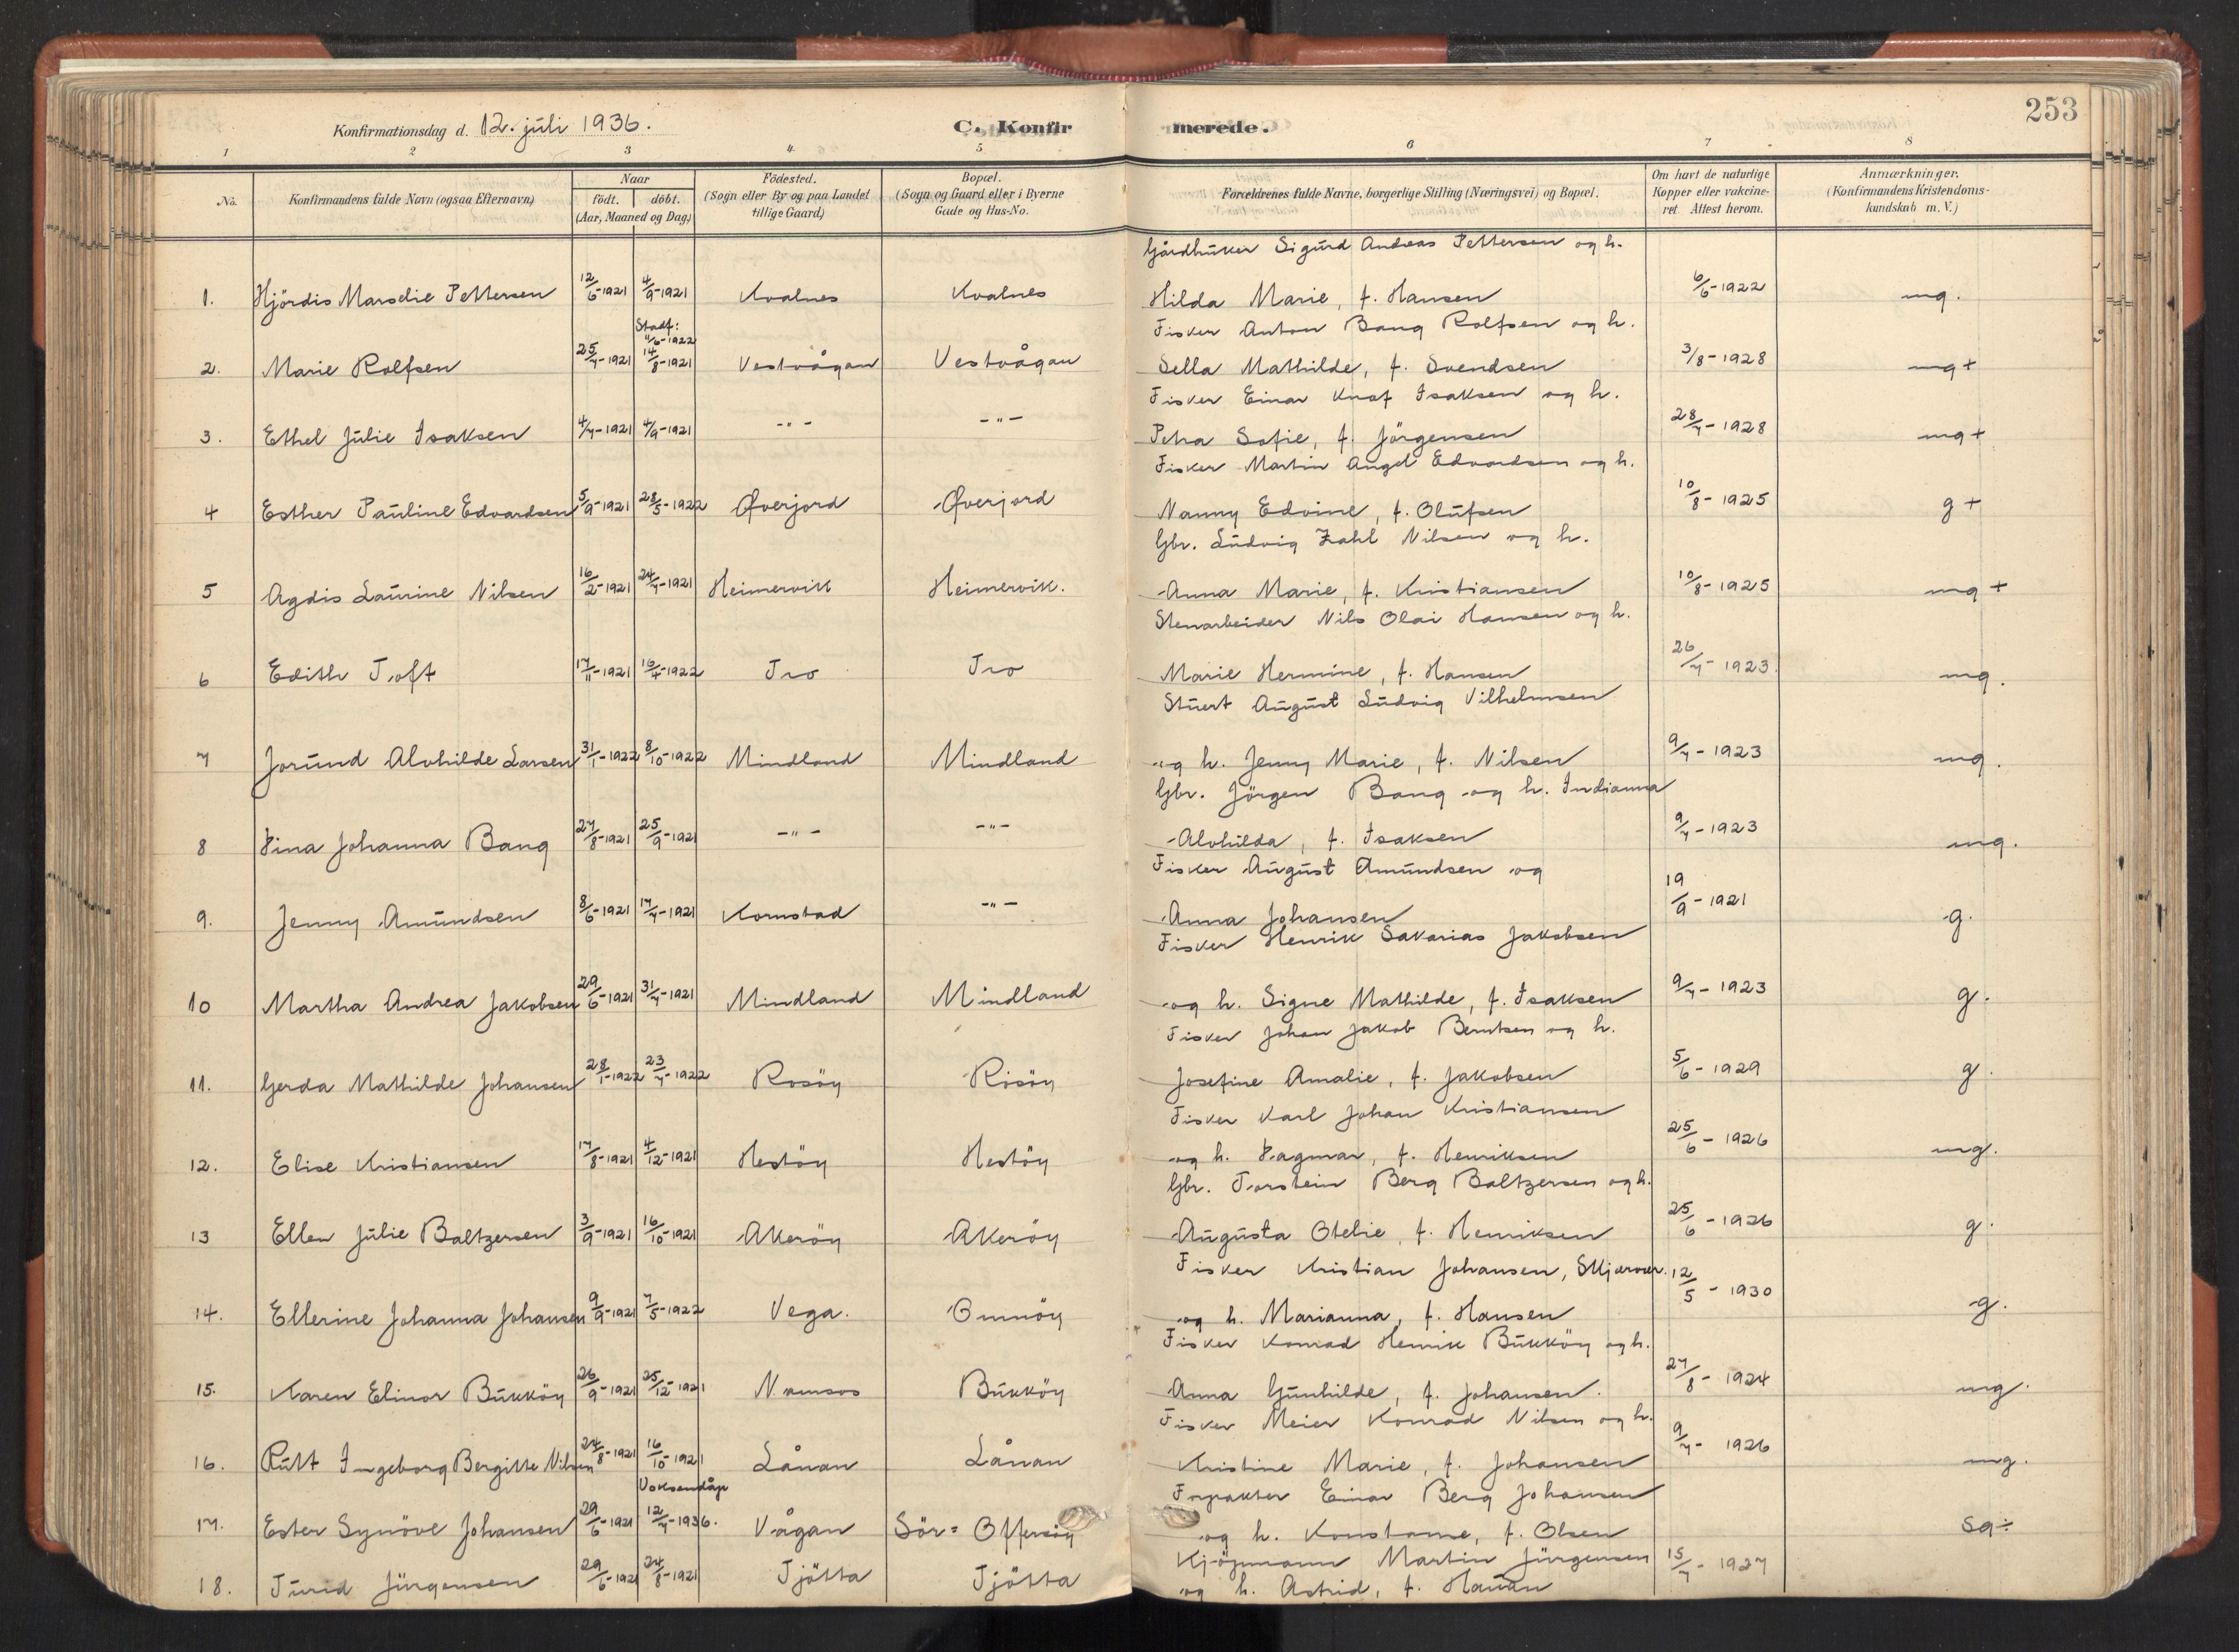 253
Konfirmationsdag d. 12. juli 1936.
C. Konfirmerede.
1 2 3 4. 5 6 7 8
No.
Konfirmandens fulde Navn (ogsaa Efternavn)
Naar
födt. döbt.
(Aar, Maaned og Dag)
Födested.
(Sogn eller By og paa Landet
tillige Gaard)
Bopæl.
(Sogn og Gaard eller i Byerne
Gade og Hus-No.
Forældrenes fulde Navne, borgerlige Stilling (Næringsvei) og Bopæl.
Om havt de naturlige
Kopper eller vakcine-
ret. Attest herom.
Anmærkninger.
(Konfirmandens Kristendoms-
kundskab m. V.)
Gårdbruker Sigurd Andreas Pettersen og h.
1. Hjördis Marselie Pettersen 12/6-1921 4/9-1921 Kvalnes Kvalnes Hilda Marie, f. Hansen 6/6-1922 mg.
Stadf: 11/6-1922
Fisker Anton Bang Rolfsen og h.
2. Marie Rolfsen 25/7-1921 14/8-1921 Vestvågan Vestvågan Sella Mathilde, f. Svendsen 3/8-1928 mg+
Fisker Einar Knof Isaksen og h.
3. Ethel Julie Isaksen 4/7-1921 4/9-1921 -"- -"- Petra Sofie, f. Jörgensen 28/7-1928 mg+
Fisker Martin Angel Edvardsen og h.
4 Esther Pauline Edvardsen 5/9-1921 28/5-1922 Øverjord Øverjord Nanny Edvine, f. Olufsen 10/8-1925 g+
Gbr. Ludvig Zahl Nilsen og h.
5 Agdis Laurine Nilsen 16/2-1921 24/7-1921 Heimervik Heimervik. Anna Marie, f. Kristiansen 10/8-1925 mg+
Stenarbeider Nils Olai Hansen og h.
6 Edith Toft 17/11-1921 16/4-1922 Tro Tro Marie Hermine, f. Hansen 26/7-1923. mg.
Stuert August Ludvig Vilhelmsen
7 Jorund Alvhilde Larsen 31/1-1922 8/10-1922 Mindland Mindland og h. Jenny Marie, f. Nilsen 9/7-1923 mg.
Gbr. Jörgen Bang og h. Indianna
8 Dina Johanna Bang 27/8-1921 25/9-1921 -"- -"- Alvhilda, f. Isaksen 9/7-1923 mg.
Fisker August Amundsen og
9. Jenny Amundsen 8/6-1921 17/7-1921 Kornstad -"- Anna Johansen 19/9-1921 g.
Fisker Henrik Sakarias Jakobsen
10 Martha Andrea Jakobsen 29/6-1921 31/7-1921 Mindland Mindland og h. Signe Mathilde, f. Isaksen 9/7-1923 g.
Fisker Johan Jakob Berntsen og h.
11. Gerda Mathilde Johansen 28/1-1922 23/7-1922 Rosöy Risöy Josefine Amalie, f. Jakobsen 5/6-1929 g.
Fisker Karl Johan Kristiansen
12. Elise Kristiansen 17/8-1921 4/12-1921 Hestöy Hestöy og h. Dagmar, f. Henriksen 25/6-1926 mg.
Gbr. Torstein Berg Baltzersen og h.
13 Ellen Julie Baltzersen 3/9-1921 16/10-1921 Akeröy Akeröy Augusta Otelie, f. Henriksen 25/6-1926 g.
Fisker Kristian Johansen, Skjærvær.
14. Ellerine Johanna Johansen 9/9-1921 7/5-1922 Vega. Omnöy og h. Marianna, f. Hansen 12/5-1930 g.
Fisker Konrad Henrik Bukköy og h.
15. Karen Elinor Bukköy 26/9-1921 25/12-1921 Namsos Bukköy Anna Gunhilde, f. Johansen. 27/8-1924 mg.
Fisker Meier Konrad Nilsen og h.
16. Rutt Ingeborg Bergitte Nilsen 24/8-1921 16/10-1921 Lånan Lånan Kristine Marie, f. Johansen 9/7-1926 mg.
Voksendåp
Forpakter Einar Berg Johansen
17. Ester Synöve Johansen 29/6-1921 12/7-1936. Vågan Sör= Offersöy og h. Konstanse, f. Olsen sg÷
Kjöpmann Martin Jürgensen
18. Turid Jürgensen 29/6-1921 24/8-1921 Tjötta Tjötta og h. Astrid, f. Hanan 15/7-1927